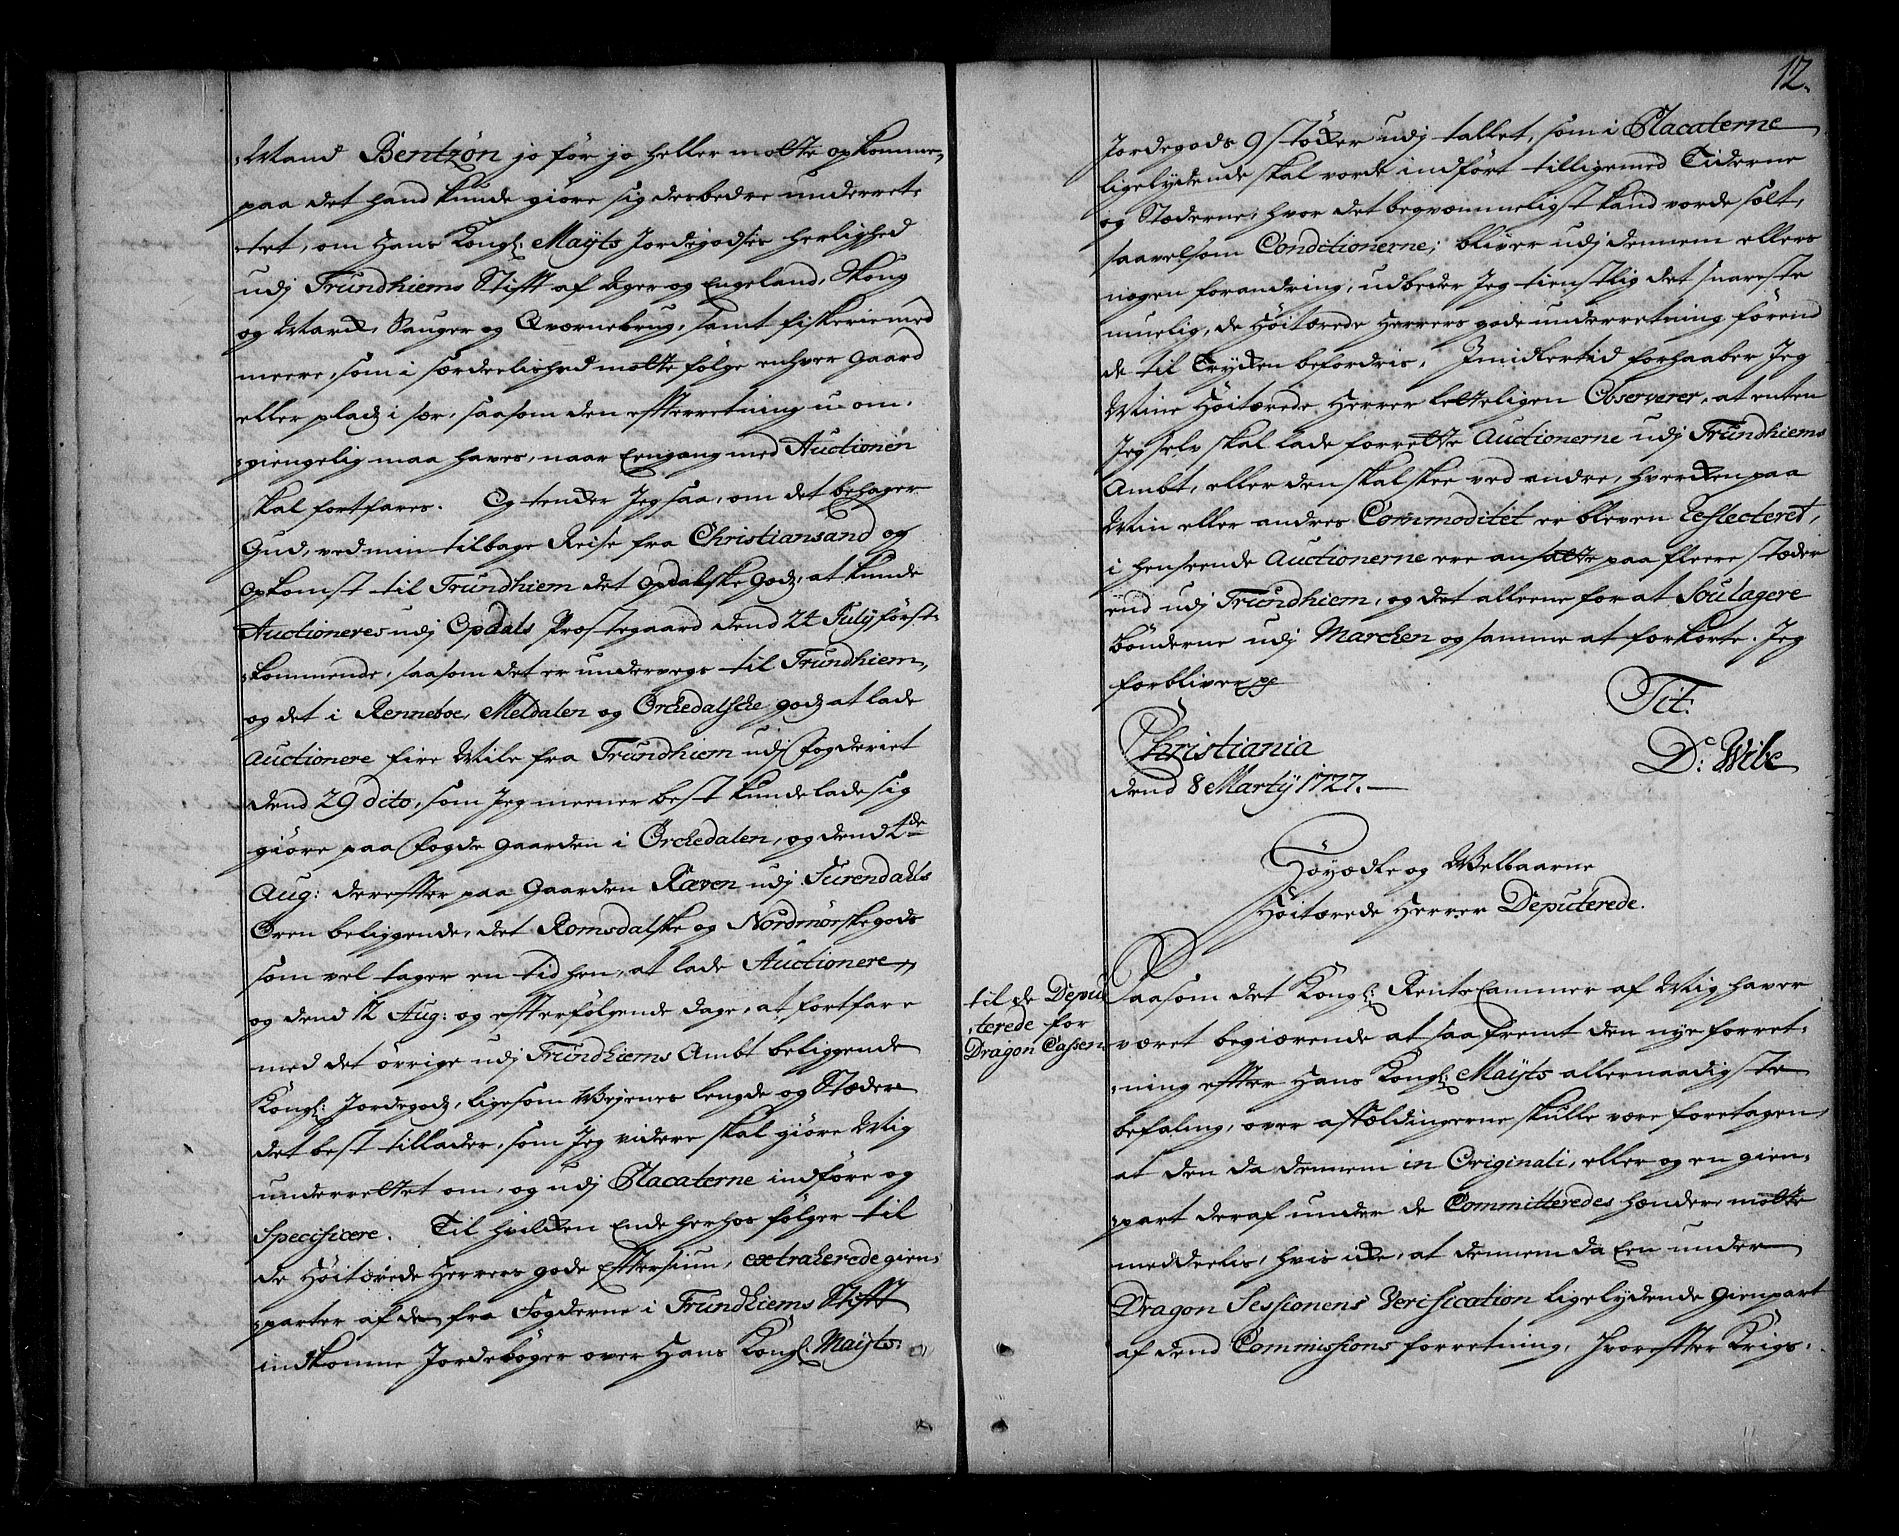 :Mand Bentzøn jo før jo heller motte opkomme,
paa det hand kunde giøre sig desbedre underret:
:tet, om Hans Kongl: Mayts Jordegodses herlighed
udj Trundhiems Stifft af Ager og Engeland, Skoug
og Mark, Sauger og Qvernebrug, samt fiskerie med
meere, som i særdeelished motte følge enhver gaard
eller pladz i sær, saasom den effterretning u-om:
:giengelig maa haves, naar Eengang med Auctionen
skal fortfares. Og tencker Jeg saa, om det behager
Gud, ved min tilbage Reise fra Christiansand og
opkomst til Trundhiem det Opdalske godz, at kunde
Auctioneres udj Opdals Præstegaard dend 24 July først:
:kommende, saasom det er undervegs til Trundhiem,
og det i Renneboe, Meldalen og Orchedalsche godz at lade
Auctionere fire Mile fra Trundhiem udj Fogderiet
dend 29 dito, som Jeg meener best kunde lade sig
giøre paa Fogde gaarden i Orchedalen, og dend 4de
Aug: dereffter paa Gaarden Ræven udj Surendahls
Øren beliggende, det Romsdalske og Nordmørske gods
som vel tager en tid hen, at lade Auctionere,
og dend 12 Aug: og effterfølgende dage, at fortfare
med det øvrige udj Trundhiems Ambt beliggende
Kongl: Jordegodz, ligesom Vejenes lengde og Stæder
det best tillader, som Jeg videre skal giøre Mig
underrettet om, og udj Placaterne indføre og
Specificere. Til hvilken Ende herhos følger til
de Høitærede Herrers gode Efftersiun, extraherede gien:
:parter af de fra Fogderne i Trundhiems Stifft
indkomne Jordebøger over Hans Kongl. Mayts:
12.
Jordegods 9 støcker udj tallet, som i Placaterne
ligelydende skal vorde indført tilligemed Tiderne
og Stæderne, hvor det begvemmeligst kand vorde solt,
saavelsom Conditionerne; bliver udj dennem ellers
nogen forandring, udbeder Jeg tienstlig det snareste
muelig, de Høitærede Herrers gode underretning førend
de til Trycken befordris, Imidlertid forhaaber Jeg
Mine Høitærede Herrer letteligen Observerer, at enten
Jeg selv skal lade forrette Auctionerne udj Trundhiems
Ambt, eller den skal skee ved andre, hvercken paa
Min eller andres Commoditet er bleven Reflecteret,
i henseende Auctionerne ere ansatte paa fleere stæder
end udj Trundhiem, og det alleene for at Soulagere
bønderne udj Marchen og samme at forkorte. Jeg
forbliver pp
Tit:
Christiania
D: Wibe
dend 8 Marty 1727.—
Høyædle og Velbaarne
Høitærede Herrer Deputerede.
til de Depu
:terede for
Dragon Cassen
Saasom det Kongl: Rente Cammer af Mig haver
været begiærende at saafremt den nye forret:
:ning effter Hans Kongl: Mayts allernaadigste
befaling, over afkældingerne skulle være foretagen,
at den da dennem in Originali, eller og en gien:
:part deraf under de Committeredes hænder motte
meddeelis, hvis icke, at dennem da Een under
Dragon Sessionens Verification ligelydende Gienpart
af dend Commissions forretning, hvoreffter Krigs: